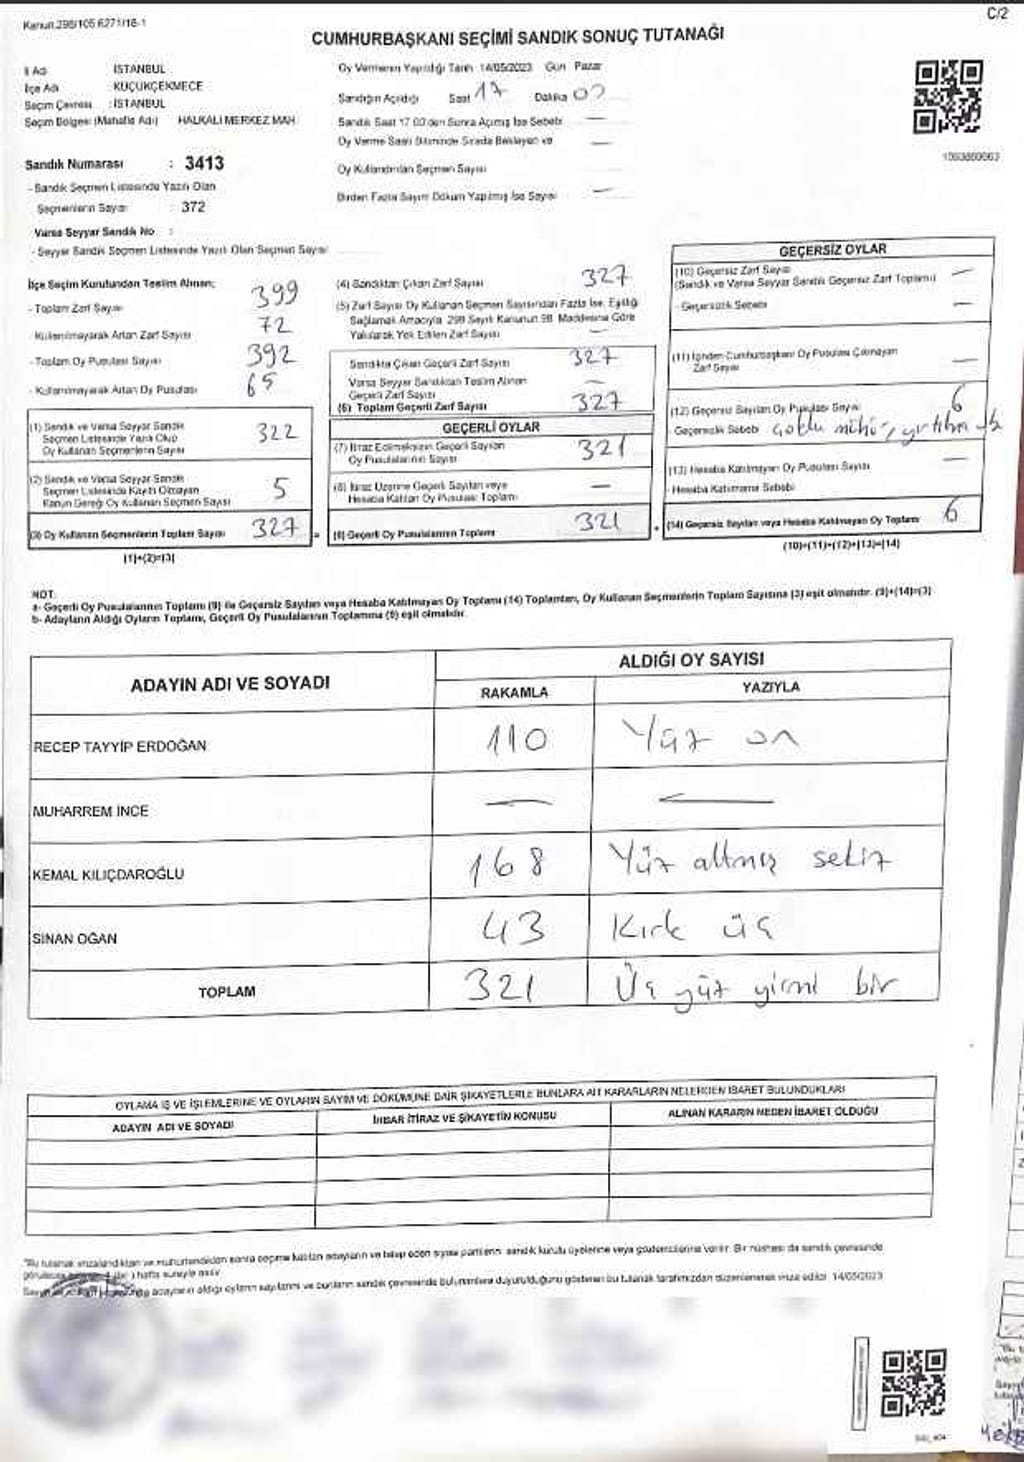 Kanun.298/105 6271/18-1
C/2
CUMHURBAŞKANI SEÇİMİ SANDIK SONUÇ TUTANAĞI
İl Adı İSTANBUL
İlçe Adı KÜÇÜKÇEKMECE
Seçim Çevresi : İSTANBUL
Seçim Bölgesi (Mahalle Adı) HALKALI MERKEZ MAH.
Sandık Numarası : 3413
- Sandık Seçmen Listesinde Yazılı Olan
Seçmenlerin Sayısı : 372
Varsa Seyyar Sandık No :
- Seyyar Sandık Seçmen Listesinde Yazılı Olan Seçmen Sayısı
Oy Vermenin Yapıldığı Tarih 14/05/2023 Gün Pazar
Sandığın Açıldığı Saat 17 Dakika 00
Sandık Saat 17.00'den Sonra Açılmış İse Sebebi —
Oy Verme Saati Bitiminde Sırada Bekleyen ve —
Oy Kullandırılan Seçmen Sayısı
Birden Fazla Sayım Döküm Yapılmış İse Sayısı —
İlçe Seçim Kurulundan Teslim Alınan;
- Toplam Zarf Sayısı 399
- Kullanılmayarak Artan Zarf Sayısı 72
- Toplam Oy Pusulası Sayısı 392
- Kullanılmayarak Artan Oy Pusulası 65
(1) Sandık ve Varsa Seyyar Sandık
Seçmen Listesinde Yazılı Olup
Oy Kullanan Seçmenlerin Sayısı 322
(2) Sandık ve Varsa Seyyar Sandık
Seçmen Listesinde Kayıtlı Olmayan
Kanun Gereği Oy Kullanan Seçmen Sayısı 5
(3) Oy Kullanan Seçmenlerin Toplam Sayısı 327
(1)+(2)=(3)
(4) Sandıktan Çıkan Zarf Sayısı 327
(5) Zarf Sayısı Oy Kullanan Seçmen Sayısından Fazla İse, Eşitliği
Sağlamak Amacıyla, 298 Sayılı Kanunun 98. Maddesine Göre
Yakılarak Yok Edilen Zarf Sayısı —
Sandıkta Çıkan Geçerli Zarf Sayısı 327
Varsa Seyyar Sandıktan Teslim Alınan
Geçerli Zarf Sayısı —
(6) Toplam Geçerli Zarf Sayısı 327
GEÇERLİ OYLAR
(7) İtiraz Edilmeksizin Geçerli Sayılan
Oy Pusulalarının Sayısı 321
(8) İtiraz Üzerine Geçerli Sayılan veya
Hesaba Katılan Oy Pusulası Toplamı —
(9) Geçerli Oy Pusulalarının Toplamı 321
GEÇERSİZ OYLAR
(10) Geçersiz Zarf Sayısı
(Sandık ve Varsa Seyyar Sandık Geçersiz Zarf Toplamı) —
- Geçersizlik Sebebi —
(11) İçinden Cumhurbaşkanı Oy Pusulası Çıkmayan
Zarf Sayısı —
(12) Geçersiz Sayılan Oy Pusulası Sayısı 6
- Geçersizlik Sebebi Çoklu mühür, yırtılma
(13) Hesaba Katılmayan Oy Pusulası Sayısı —
- Hesaba Katılmama Sebebi
(14) Geçersiz Sayılan veya Hesaba Katılmayan Oy Toplamı 6
(10)+(11)+(12)+(13)=(14)
NOT:
a- Geçerli Oy Pusulalarının Toplamı (9) ile Geçersiz Sayılan veya Hesaba Katılmayan Oy Toplamı (14) Toplamları, Oy Kullanan Seçmenlerin Toplam Sayısına (3) eşit olmalıdır. (9)+(14)=(3)
b- Adayların Aldığı Oyların Toplamı, Geçerli Oy Pusulalarının Toplamına (9) eşit olmalıdır.
ADAYIN ADI VE SOYADI
ALDIĞI OY SAYISI
RAKAMLA YAZIYLA
RECEP TAYYİP ERDOĞAN 110 Yüz on
MUHARREM İNCE — —
KEMAL KILIÇDAROĞLU 168 Yüz altmış sekiz
SİNAN OĞAN 43 Kırk üç
TOPLAM 321 Üç yüz yirmi bir
OYLAMA İŞ VE İŞLEMLERİNE VE OYLARIN SAYIM VE DÖKÜMÜNE DAİR ŞİKAYETLERLE BUNLARA AİT KARARLARIN NELERDEN İBARET BULUNDUKLARI
ADAYIN ADI VE SOYADI İHBAR İTİRAZ VE ŞİKAYETİN KONUSU ALINAN KARARIN NEDEN İBARET OLDUĞU
"Bu tutanak imzalandıktan ve mühürlendikten sonra seçime katılan adayların ve talep eden siyasi partilerin sandık kurulu üyelerine veya gözlemcilerine verilir. Bir nüshası da sandık çevresinde
hafta süreyle asılır
adayların aldığı oyların sayılarını ve bunların sandık çevresinde bulunanlara duyurulduğunu gösteren bu tutanak tarafımızdan düzenlenerek imza edildi. 14/05/2023